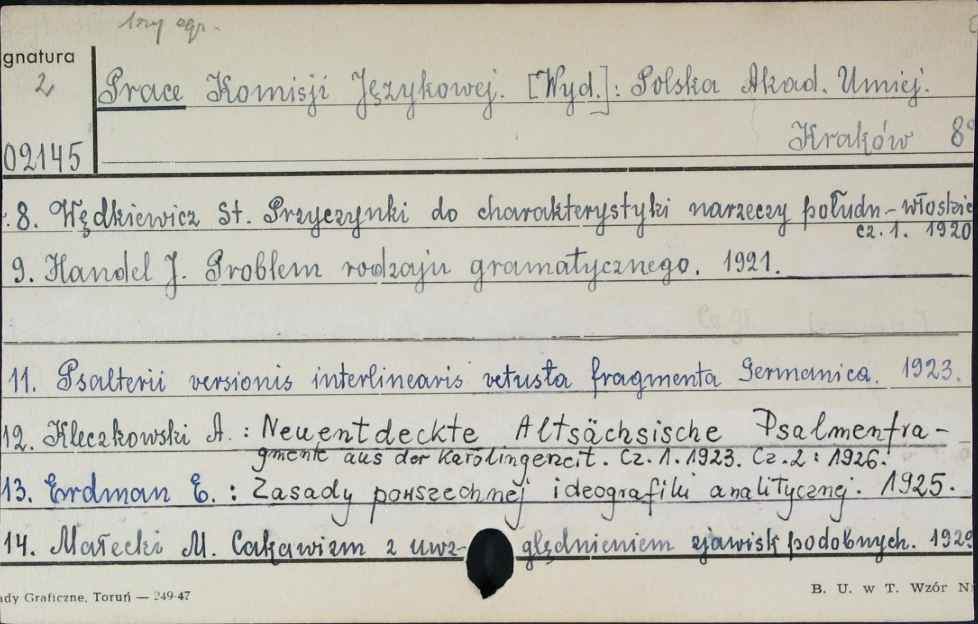 gnatura
2
Prace Komisji Językowej. [Wyd.]: Polska Akad. Umiej.
Kraków 8°
02145
8. Wędkiewicz St. Przyczynki do charakterystyki narzeczy połudn-włoskie
cz. 1. 1920
9. Handel J. Problem rodzaju gramatycznego. 1921.
11. Psalterii versionis interlinearis vetusta fragmenta Germanica. 1923.
12. Kleczkowski A.: Neuentdeckte Altsächsische Psalmenfra-
gmente aus der Karolingerzeit. Cz. 1. 1923. Cz. 2: 1926.
13. Erdman E.: Zasady powszechnej ideografiki analitycznej. 1925.
14. Małecki M. Cakawizm z uwz- ględnieniem zjawisk podobnych. 1929
ady Graficzne, Toruń — 249-47
B. U. w T. Wzór N